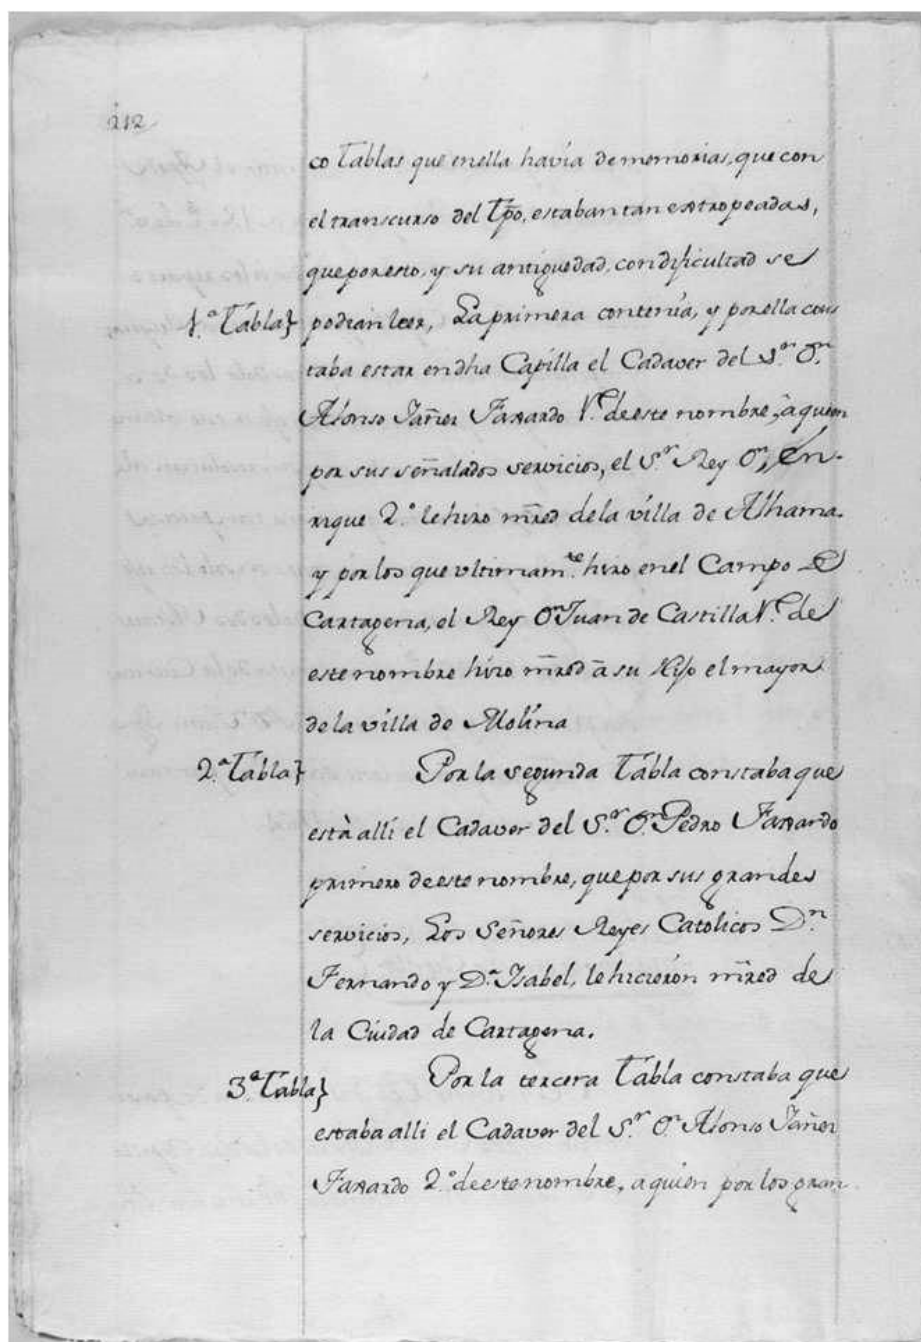 212
co Tablas que en ella havía de memorias, que con
el transcurso del Tpo, estaban tan estropeadas,
que por esto, y su antiguedad, con dificultad se
1.ª Tabla} podian leer, La primera contenía, y por ella cons
taba estar en dha Capilla el Cadaver del S.r D.n
Alonso Iañez Faxardo 1.º de este nombre, à quien
por sus señalados servicios, el S.r Rey D.n En-
rique 2.º le hizo mred de la villa de Alhama.
y por los que ultimam.te hizo en el Campo de
Cartagena, el Rey D.n Juan de Castilla 1.º de
este nombre hizo mred à su Hijo el mayor
de la villa de Molina
2.ª Tabla} Por la segunda Tabla constaba que
està alli el Cadaver del S.r D.n Pedro Faxardo
primero de este nombre, que por sus grandes
servicios, Los Señores Reyes Catolicos D.n
Fernando y D.ª Isabel, le hicieron mred de
la Ciudad de Cartagena.
3.ª Tabla} Por la tercera Tabla constaba que
estaba alli el Cadaver del S.r D.n Alonso Iañez
Faxardo 2.º de este nombre, a quien por los gran